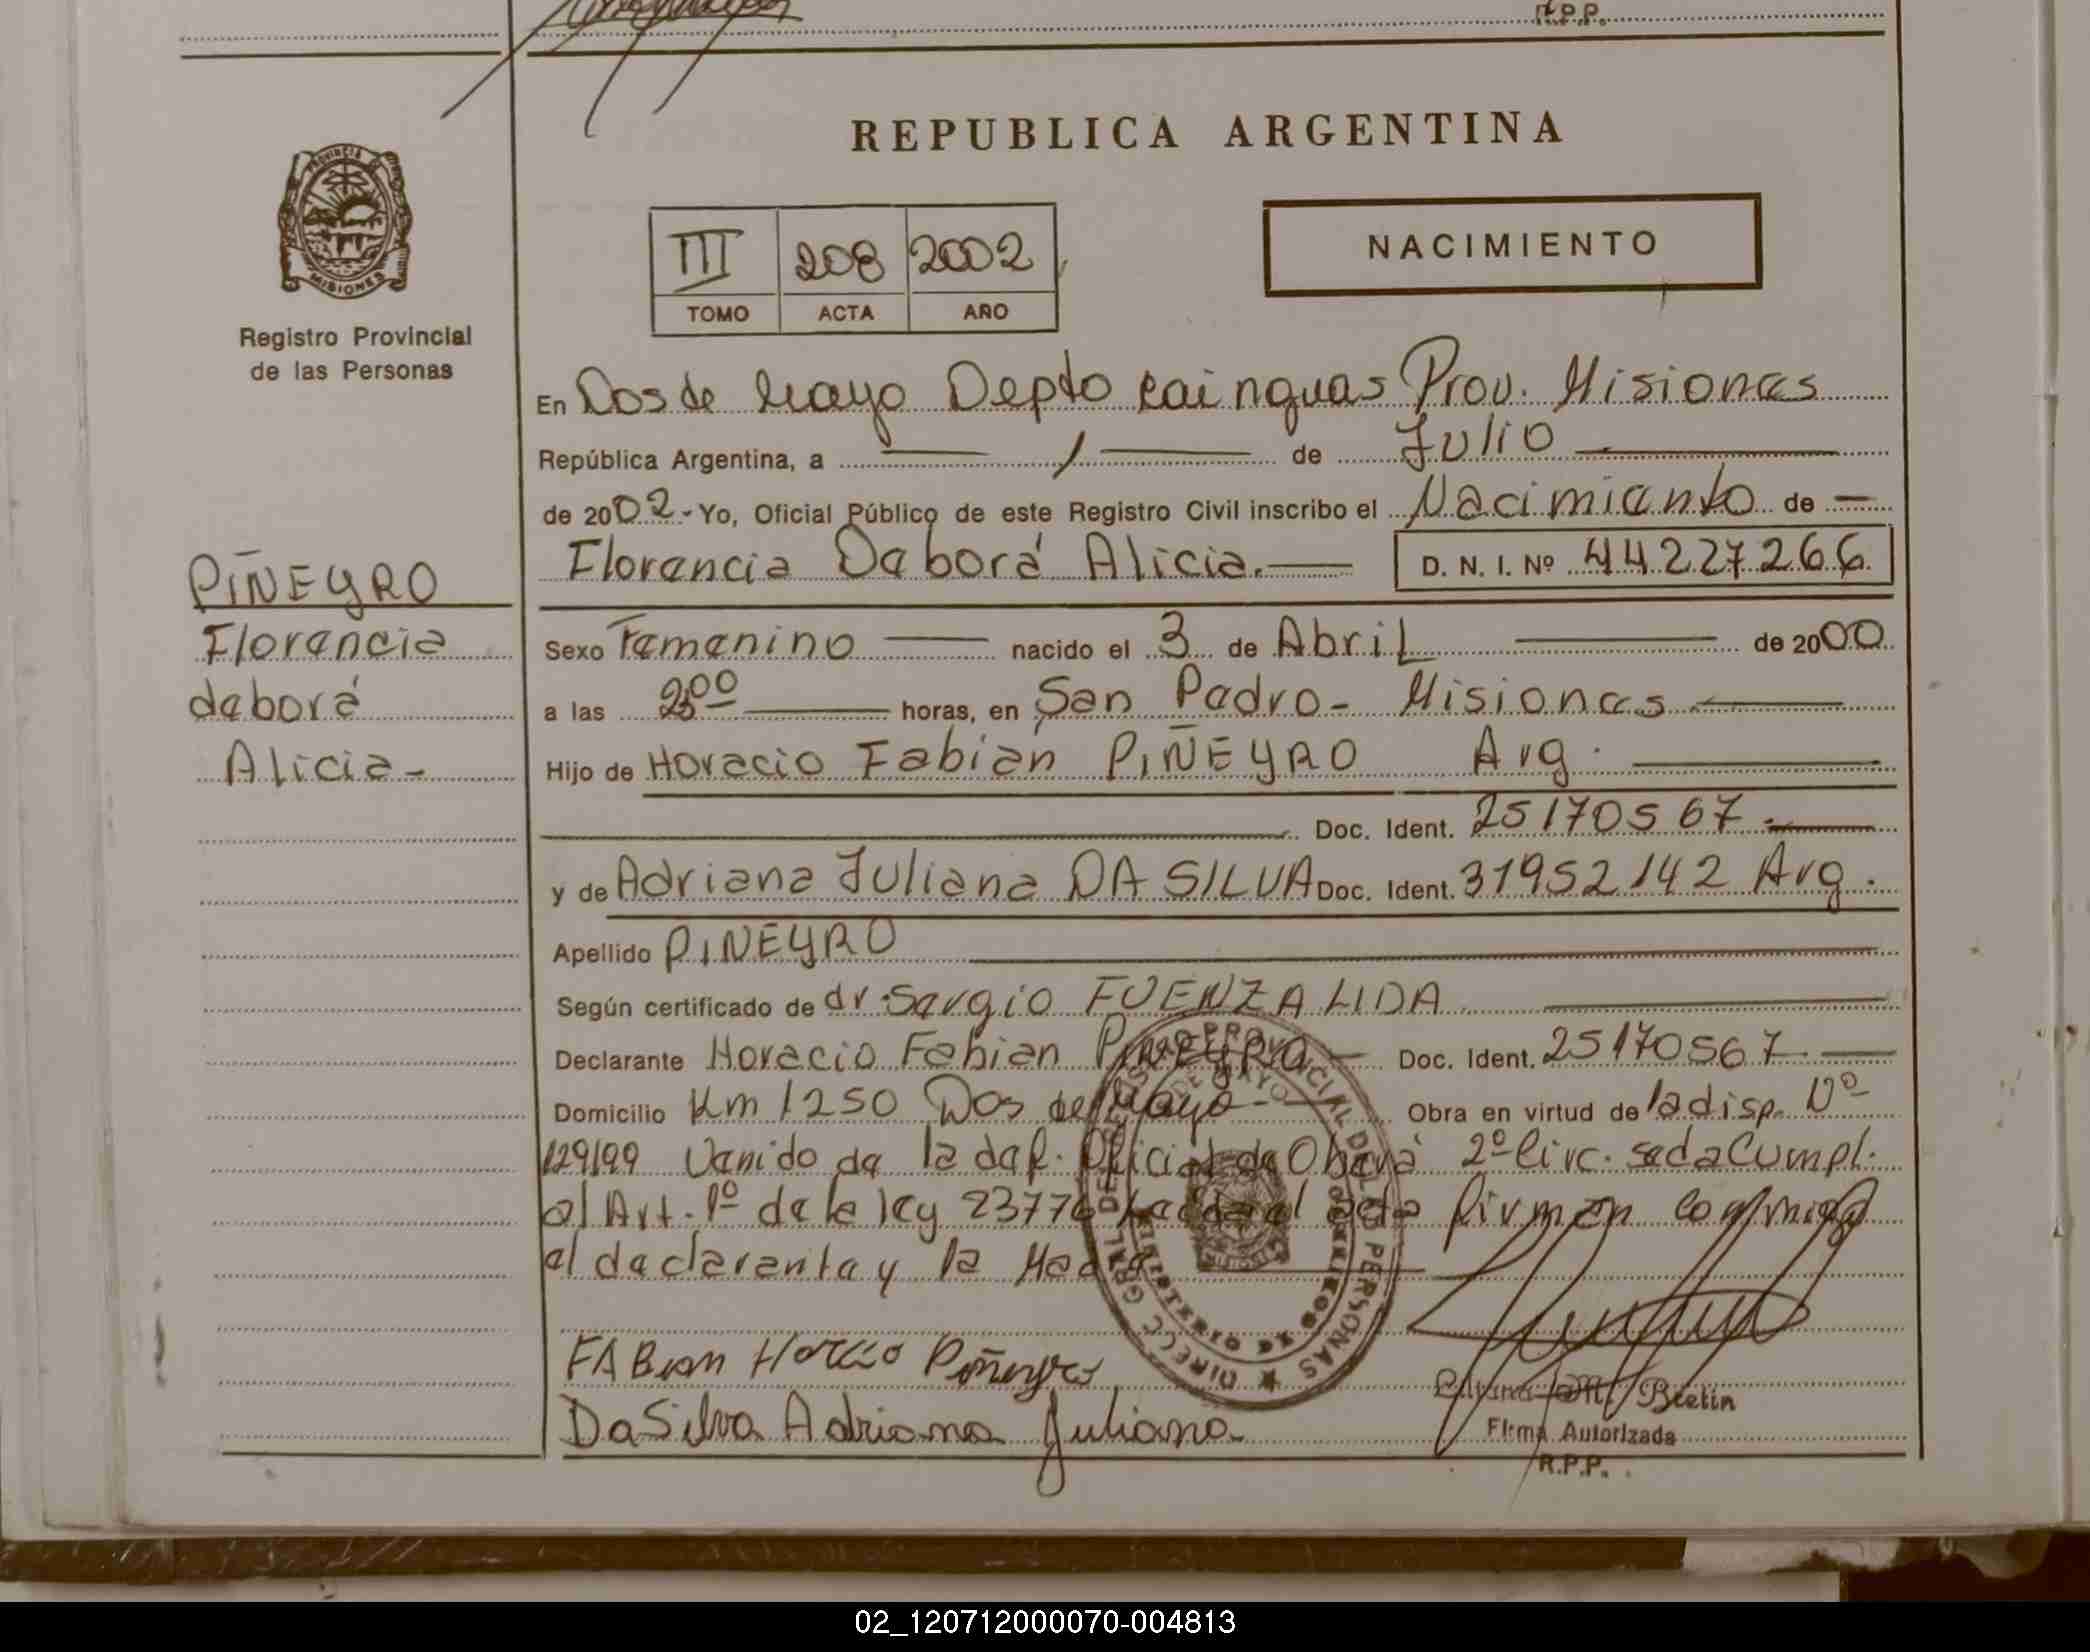 R.P.P.
REPUBLICA ARGENTINA
PROVINCIA
MISIONES
Registro Provincial
de las Personas
III 208 2002
TOMO ACTA AÑO
NACIMIENTO
En Dos de Mayo Depto Cainguas Prov. Misiones
República Argentina, a 1 de Julio
de 2002 - Yo, Oficial Público de este Registro Civil inscribo el Nacimiento de
Florencia Deborá Alicia. D. N. I. Nº 44227266
PIÑEYRO
Florencia
deborá
Alicia -
Sexo Femenino nacido el 3 de Abril de 2000
a las horas, en San Pedro - Misiones
Hijo de Horacio Fabian PIÑEYRO Arg.
Doc. Ident. 25170567.
y de Adriana Juliana DA SILVA Doc. Ident. 31952142 Arg.
Apellido PIÑEYRO
Según certificado de dr. Sergio FUENZALIDA
Declarante Horacio Fabian Piñeyro Doc. Ident. 25170567
Domicilio Km 1250 Dos de Mayo - Obra en virtud de la disp. Nº
129/99 Venido de la del. Oficial de Oberá 2º Circ. se da Cumpl.
al Art. 1º de la ley 23776 firman conmigo
el declarante y la Madre
FABian Horacio Piñeyro
Da Silva Adriana Juliana
DIRECC GRAL DEL REGISTRO PROVINCIAL DE LAS PERSONAS
DE MAYO
MINISTERIO DE GOBIERNO
M. Bretin
Firma Autorizada
R.P.P.
02_120712000070-004813